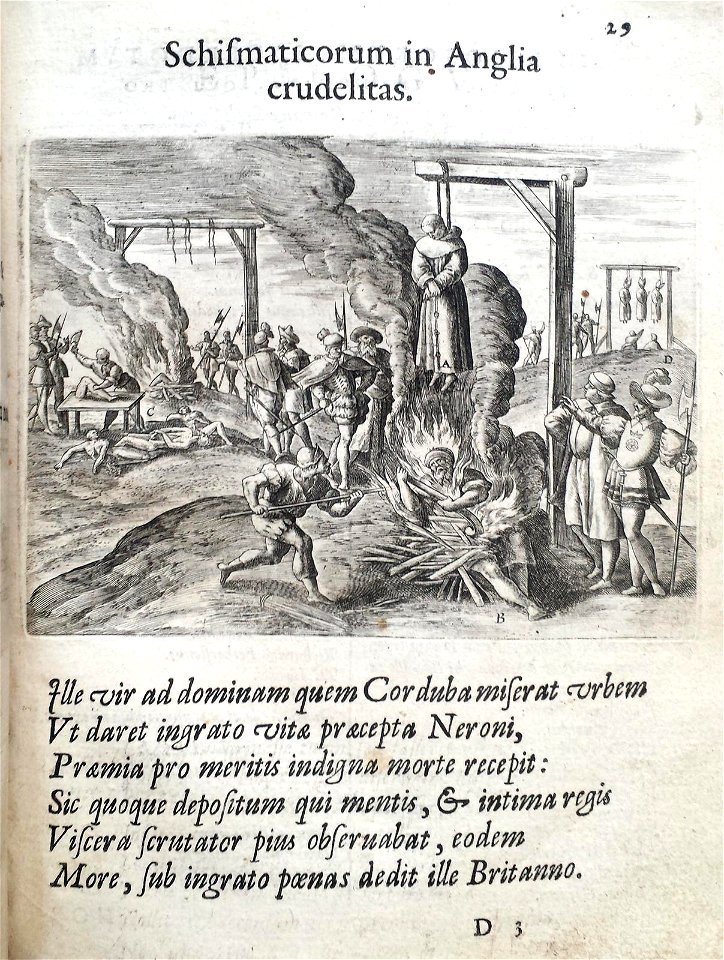 29
Schiſmaticorum in Anglia
crudelitas.
A
B
C
D
Ille vir ad dominam quem Corduba miſerat vrbem
Vt daret ingrato vitæ præcepta Neroni,
Præmia pro meritis indigna morte recepit:
Sic quoque depoſitum qui mentis, & intima regis
Viſcera ſcrutator pius obſeruabat, eodem
More, ſub ingrato pœnas dedit ille Britanno.
D 3